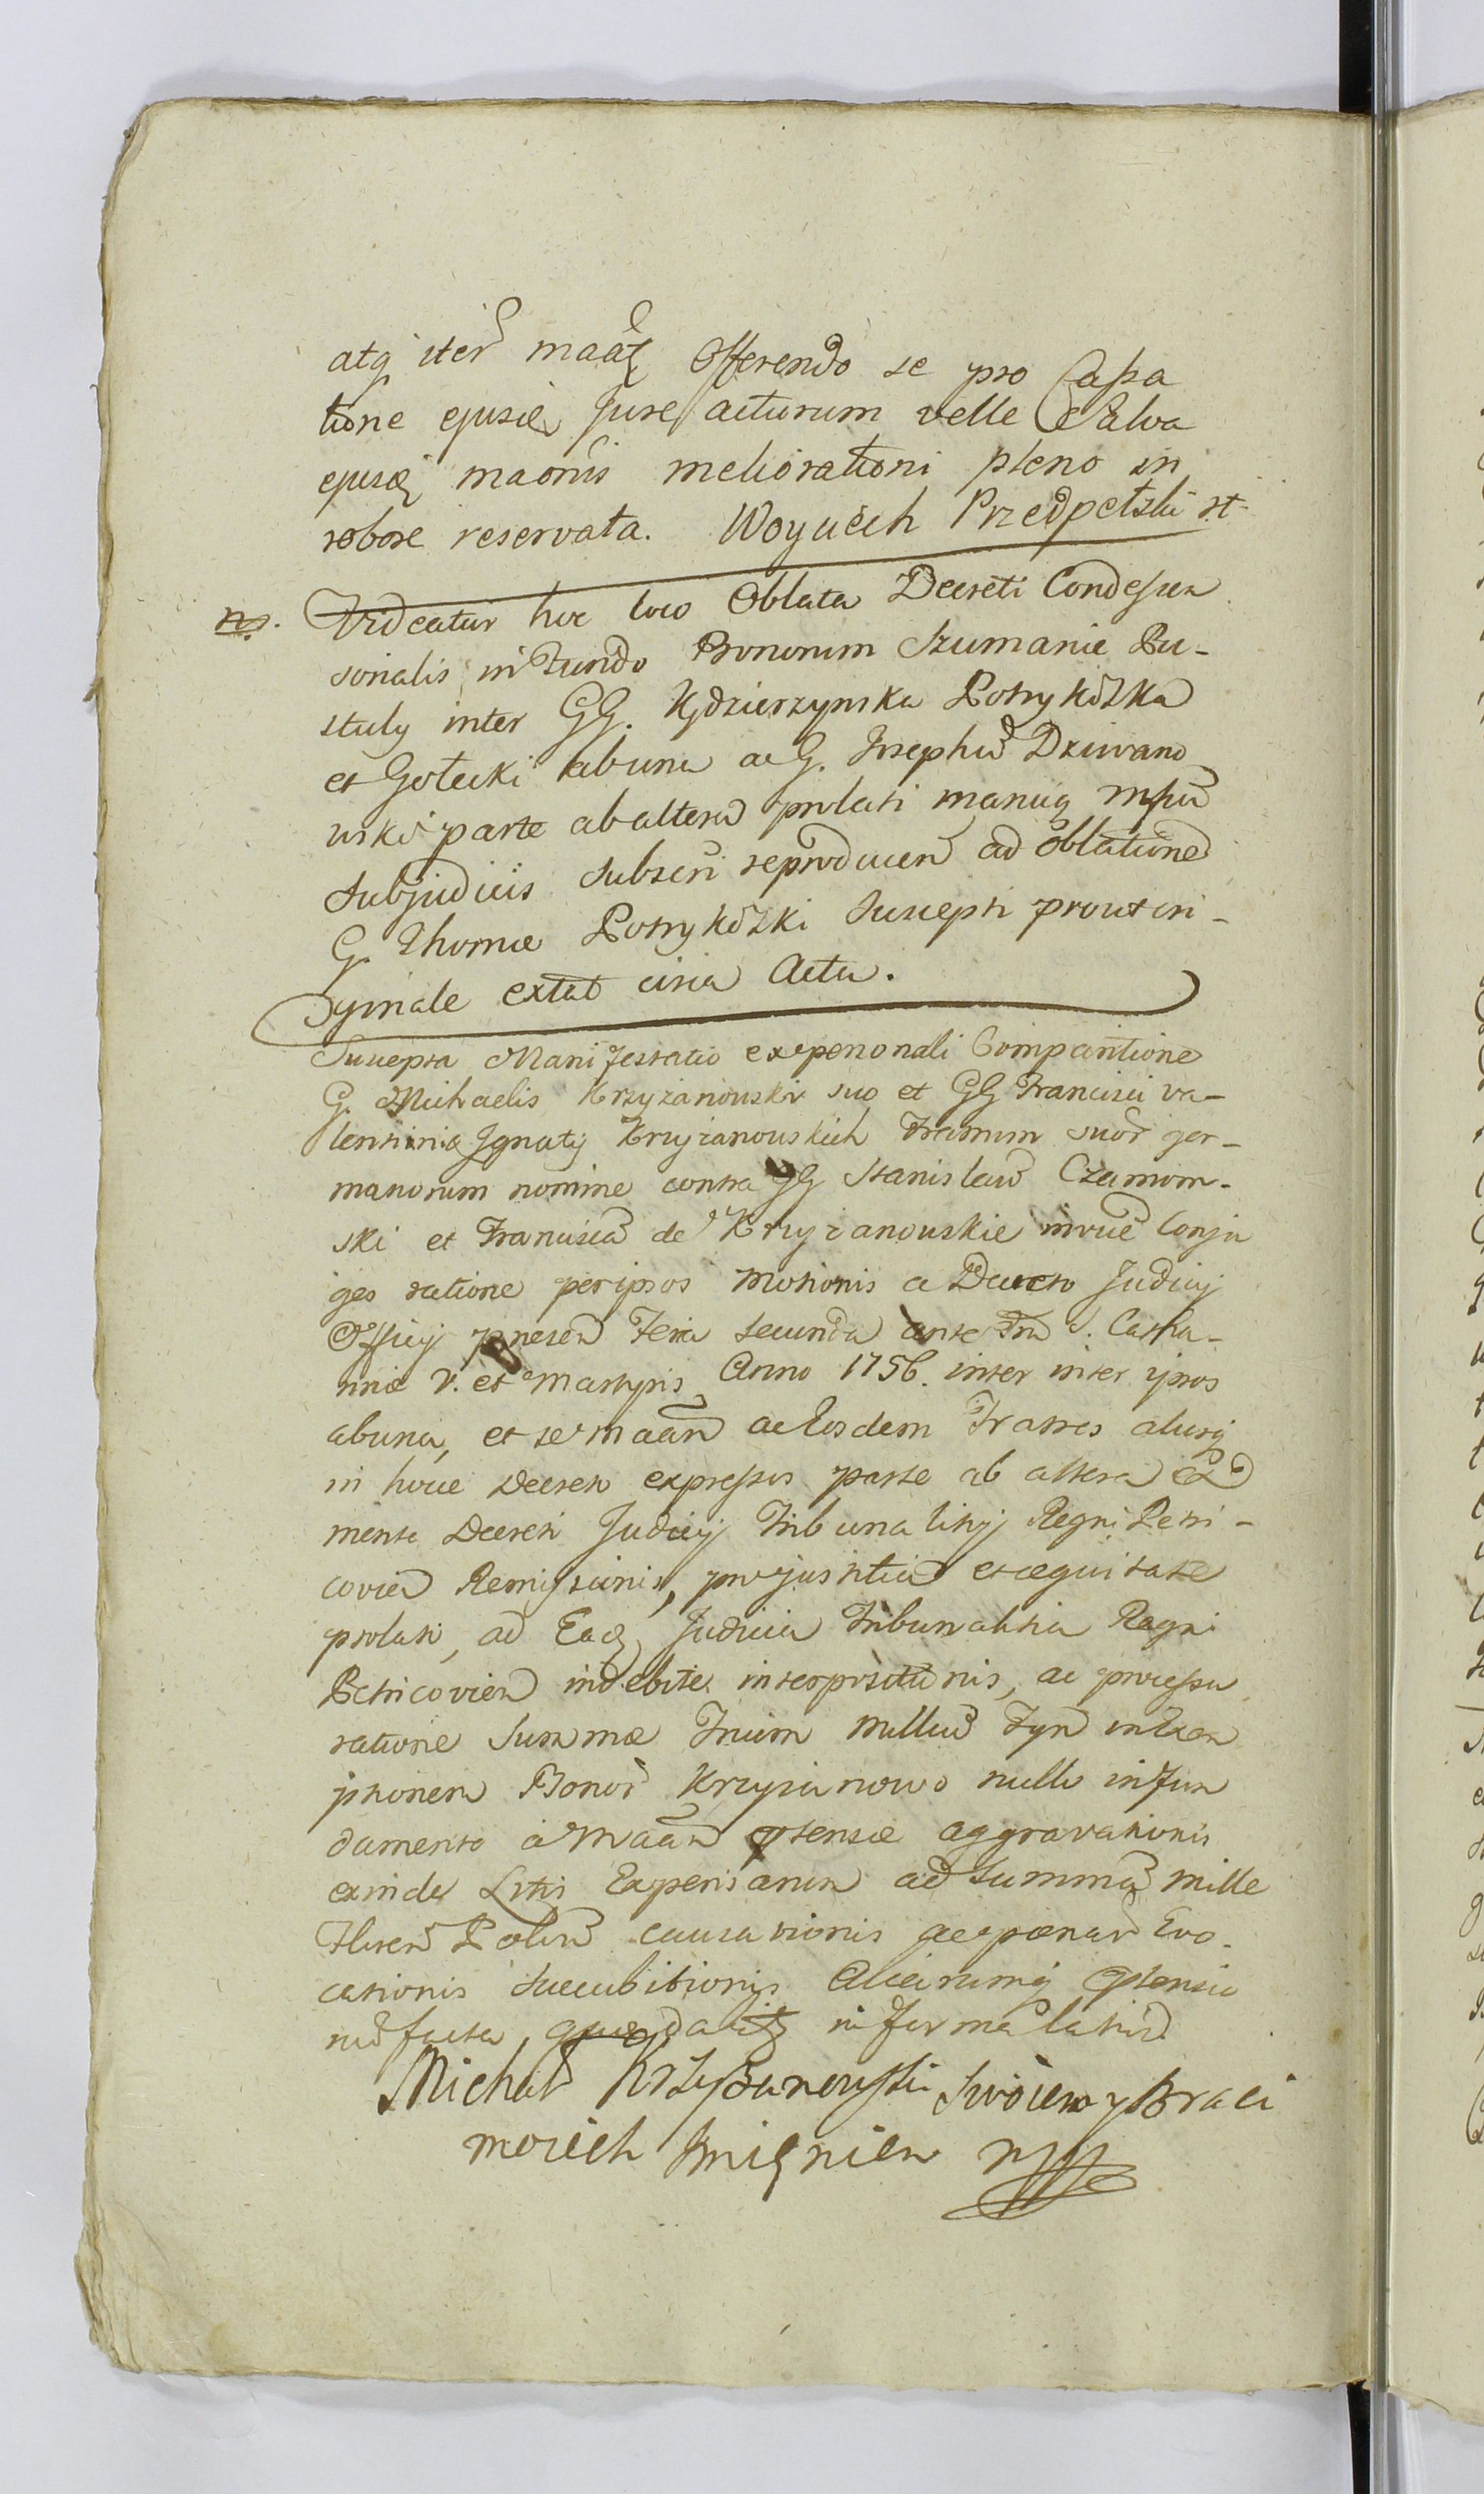 atq iter maãz Offerendo se pro Capa
tione ejusd Jure acturum velle Salva
ejusq maonis meliorationi pleno in
robore reservata. Woyciech Przedpełski st
ns. Videatur hoc loco Oblata Decreti Condescen
sorialis in Fundo Bonorum Szumanie Pu-
stuly inter GG. Kędzierzynska Potrykoska
et Gołecki ab una ac G. Josephũ Dziwano
wski parte ab altera prolati manuq
Subjudicis Subscri reproducen ad oblatione
G. Thomæ Potrykoski Suscepti prout ori-
ginale extat circa Acta.
Suscepta Manifestatio ex personali Comparitione
G. Michaelis Krzyzanowski suo et GG Francisci Va-
lentini Ignatij Krzyzanowskich Fratrum suor ger-
manorum nomine contra GG Stanislaw Czamom-
ski et Francisca de Krzyzanowskie invic Conju
ges ratione per ipsos Motionis a Decreto Judicij
Officij presen Feria Secunda ante Fm S. Catha-
rinæ V. et Martyris Anno 1756. inter inter ipsos
ab una, et se maãn ac Eosdem Fratres aliosq
in hocce Decreto expressos parte ab altera Ex
mente Decreti Judicij Tribunalitij Regni Petri-
covien Remissionis, pro justitia et æquitate
prolati, ad Eaq Judicia Tribunalitia Regni
Petricovien indebite interpositionis, ac processu
ratione Summæ Trium Milliũ Fyn inscri
ptionem Bonor Krzyzanowo nullo in fun
damento a Maãn ptensæ aggravationis
exinde Litis Expensarum ad Summã mille
Floren Polon causationis ac pænar Evo-
cationis Succubitionis Aliarumq ptensio
num facta, in forma latiori
Michał Krzyżanowski Swoiem y Braci
moiich Imieniem mpp